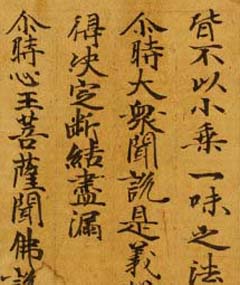 皆不以小乘一味之法
尒時大衆聞說是義
得决定断結盡漏
尒時心王菩薩聞佛說